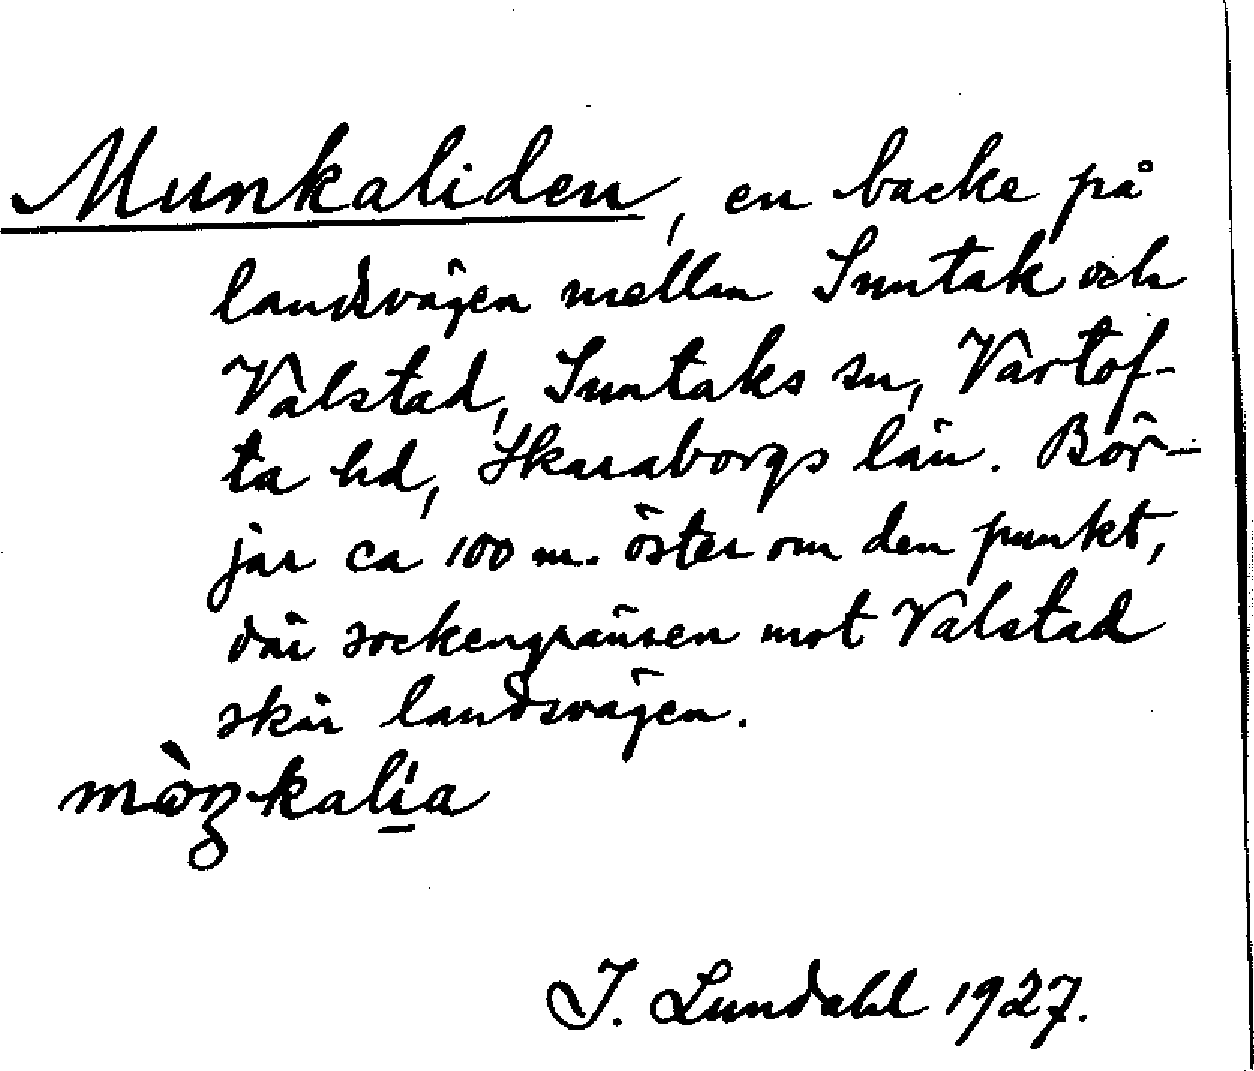 Munkaliden, en backe på
landsvägen mellan Suntak och
Valstad, Suntaks sn, Vartof-
ta hd, Skaraborgs län. Bör-
jar ca 100 m. öster om den punkt,
där sockengränsen mot Valstad
skär landsvägen.
J. Lundahl 1927.